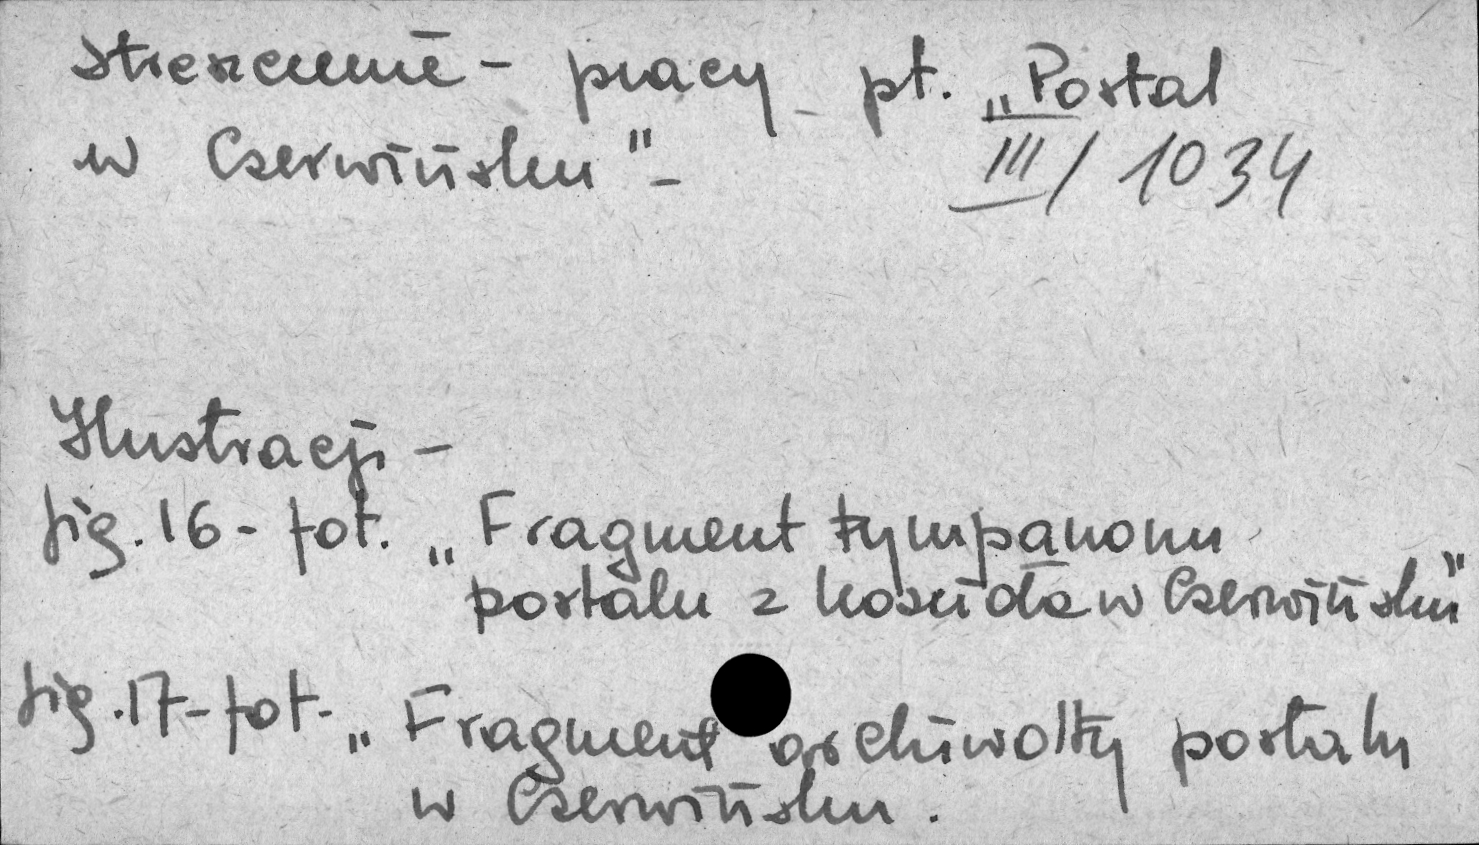 streszczenie - pracy pt. „Portal
w Czerwińsku" -
III / 1034
Ilustracji -
fig. 16 - fot. „Fragment tympanonu
portalu z kościoła w Czerwińsku"
fig. 17 - fot. „Fragment archiwolty portalu
w Czerwińsku.